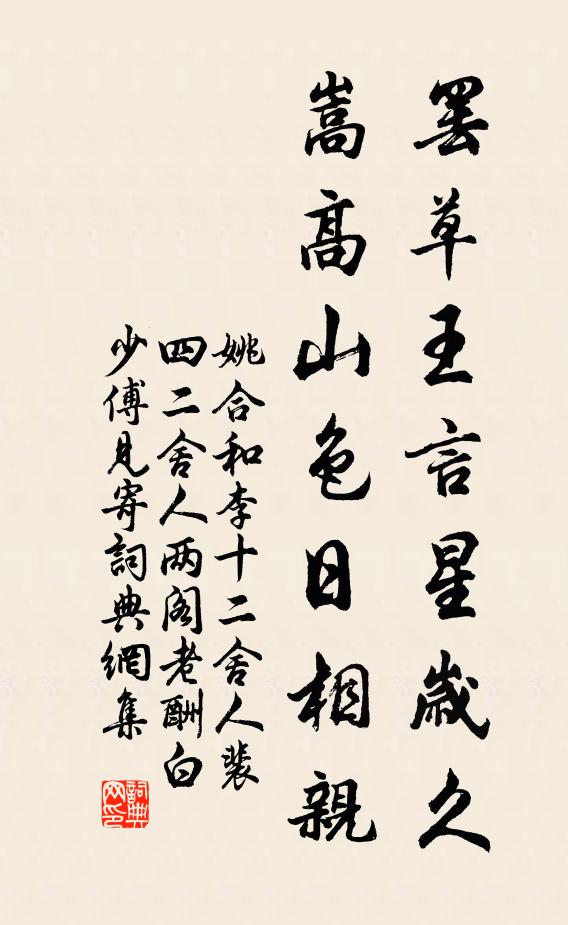 罢草王言星歲久
嵩高山色日相親
姚合和李十二舍人裴
四二舍人两阁老酬白
少傅見寄詞典網集
詞典
网印